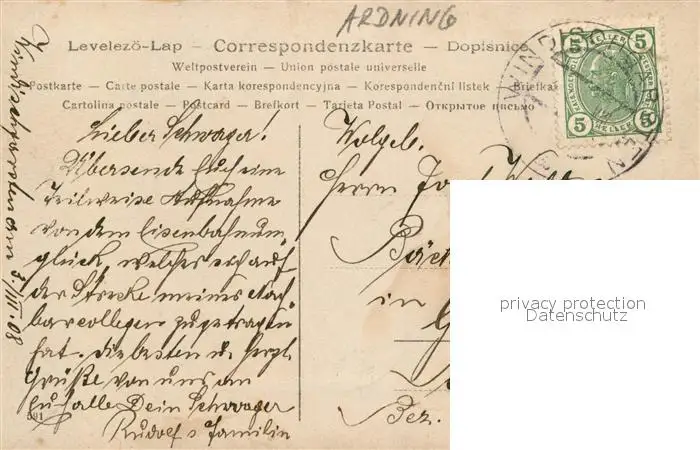 ARDNING
Levelező-Lap — Correspondenzkarte — Dopisnice
Weltpostverein — Union postale universelle
Postkarte — Carte postale — Karta korespondencyjna — Korespondenční listek — Briefka
Cartolina postale — Postcard — Brefkort — Tarjeta Postal — Открытое письмо
5 HELLER 5
5 HELLER 5
WINDISCH
Windischgarsten am 3/III. 08
Lieber Schwager!
Übersende Euch eine
Teilweise Aufnahme
von dem Eisenbahnun
glück, welches sich auf
der Strecke meines Nach
barcollegen zugetragen
hat. Die besten u. herzl.
Grüße von uns an
Euch alle Dein Schwager
Rudolf s Familie
591
Wolgeb.
Herrn
in
Bez.
privacy protection
Datenschutz